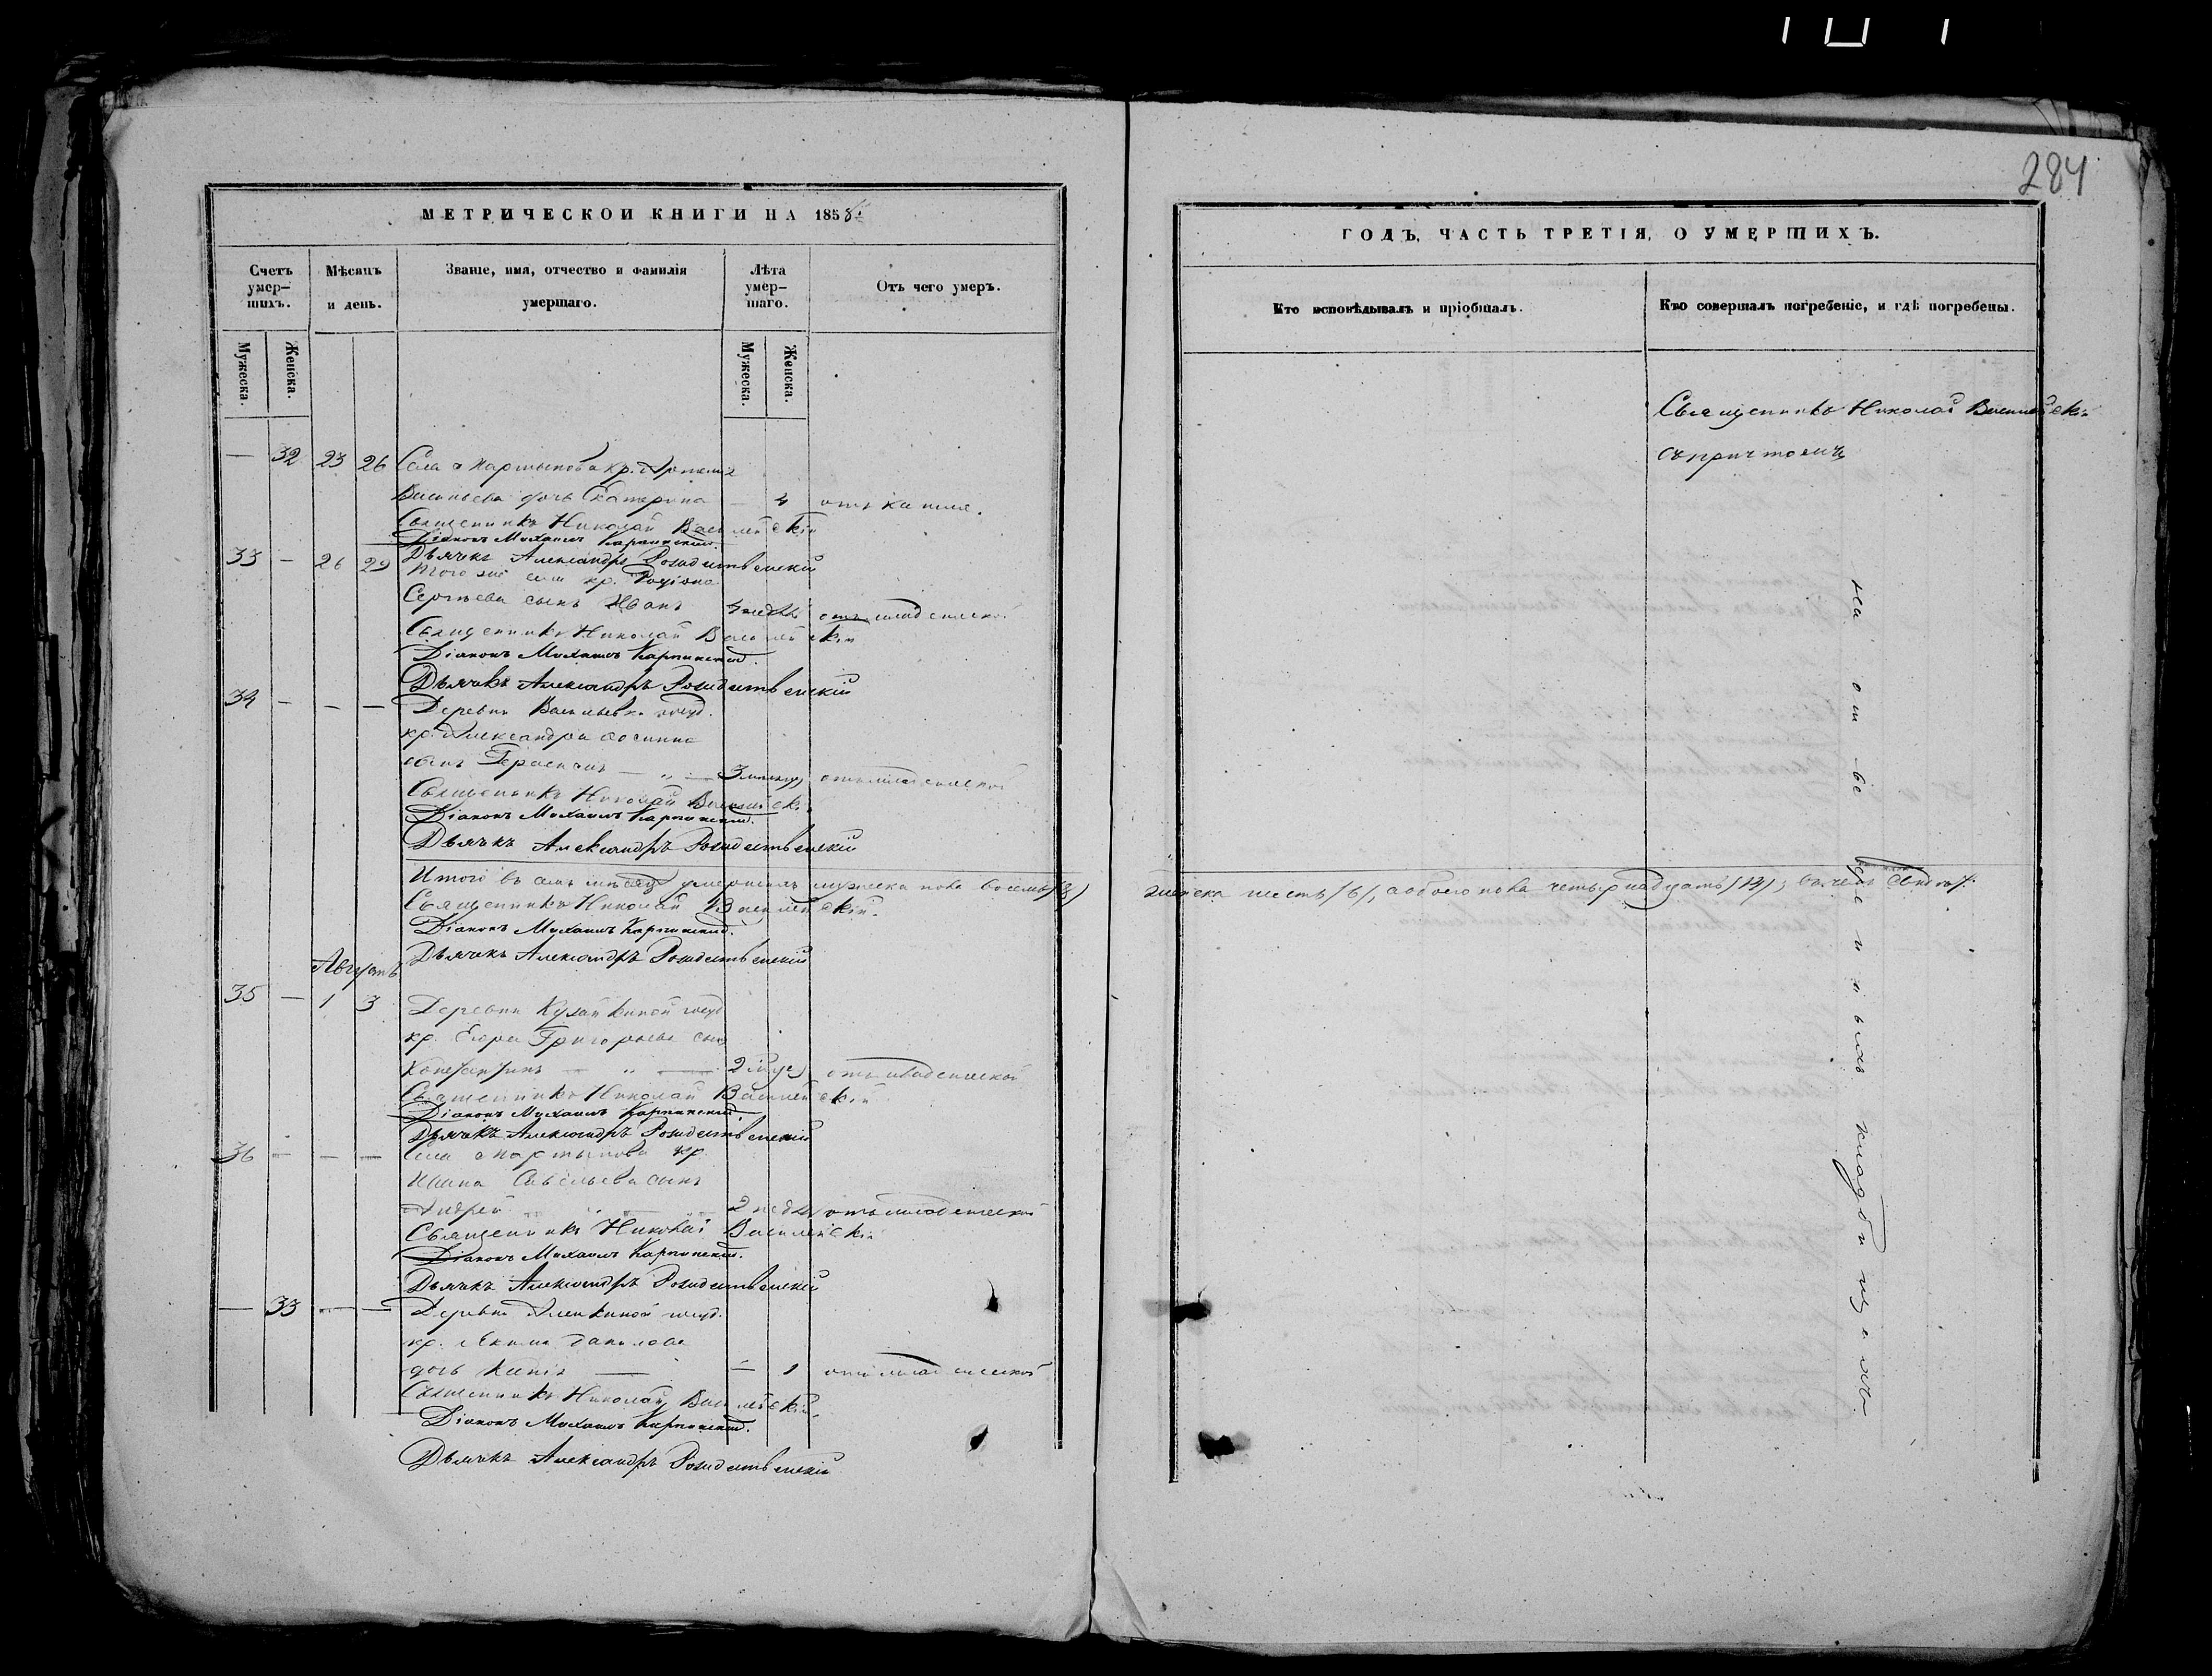 284
МЕТРИЧЕСКОЙ КНИГИ НА 1858й
Счетъ умер-шихъ.
Мѣсяцъ и день.
Званіе, имя, отчество и фамилія умершаго.
Лѣта умер-шаго.
Отъ чего умеръ.
Мужеска.
Женска.
Мужеска.
Женска.
— 32 23 26 Села Мартынова кр. Артемія
Васильева дочь Екатерина — 4 отъ кашля.
Священникъ Николай Васильевскій
Діаконъ Михаилъ Карпинскій.
Дьячекъ Александръ Рождественскій
33 — 26 29 Того же села кр. Родіона
Сергѣева сынъ Иванъ 4 недѣль отъ младенческой
Священникъ Николай Васильевскій
Діаконъ Михаилъ Карпинскій.
Дьячекъ Александръ Рождественскій
34 — — — Деревни госуд.
кр. Александра
сынъ Герасимъ — „ — 3 отъ младенческой
Священникъ Николай Васильевскій
Діаконъ Михаилъ Карпинскій.
Дьячекъ Александръ Рождественскій
Итого въ семъ мѣсяцѣ умершихъ мужеска пола восемь (8)
Священникъ Николай Васильевскій.
Діаконъ Михаилъ Карпинскій.
Дьячекъ Александръ Рождественскій
Августъ
35 — 1 3 Деревни госуд
кр. Егора Григорьева сынъ
— „ — 2 отъ младенческой
Священникъ Николай Васильевскій
Діаконъ Михаилъ Карпинскій.
Дьячекъ Александръ Рождественскій
36 — — — Села Мартынова кр.
Савельева сынъ
Андрей 2 недѣл отъ младенческой
Священникъ Николай Васильевскій
Діаконъ Михаилъ Карпинскій.
Дьячекъ Александръ Рождественскій
— 33 — — Деревни госуд.
кр. Данилова
дочь — — 1 отъ младенческой
Священникъ Николай Васильевскій.
Діаконъ Михаилъ Карпинскій.
Дьячекъ Александръ Рождественскій
ГОДЪ, ЧАСТЬ ТРЕТІЯ, О УМЕРШИХЪ.
Кто исповѣдывалъ и пріобщалъ.
Кто совершалъ погребеніе, и гдѣ погребены.
Священникъ Николай Васильевскій
съ причтомъ
женска шесть (6), а обоего пола четырнадцать (14)
на отведенномъ кладбищѣ.